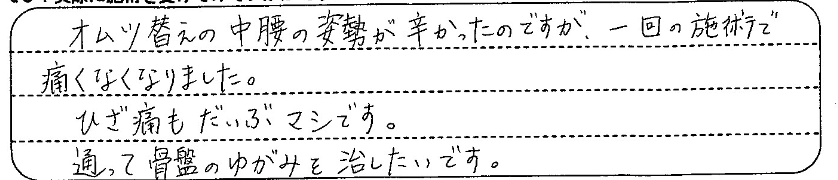 オムツ替えの中腰の姿勢が辛かったのですが、一回の施術で
痛くなくなりました。
ひざ痛もだいぶマシです。
通って骨盤のゆがみを治したいです。